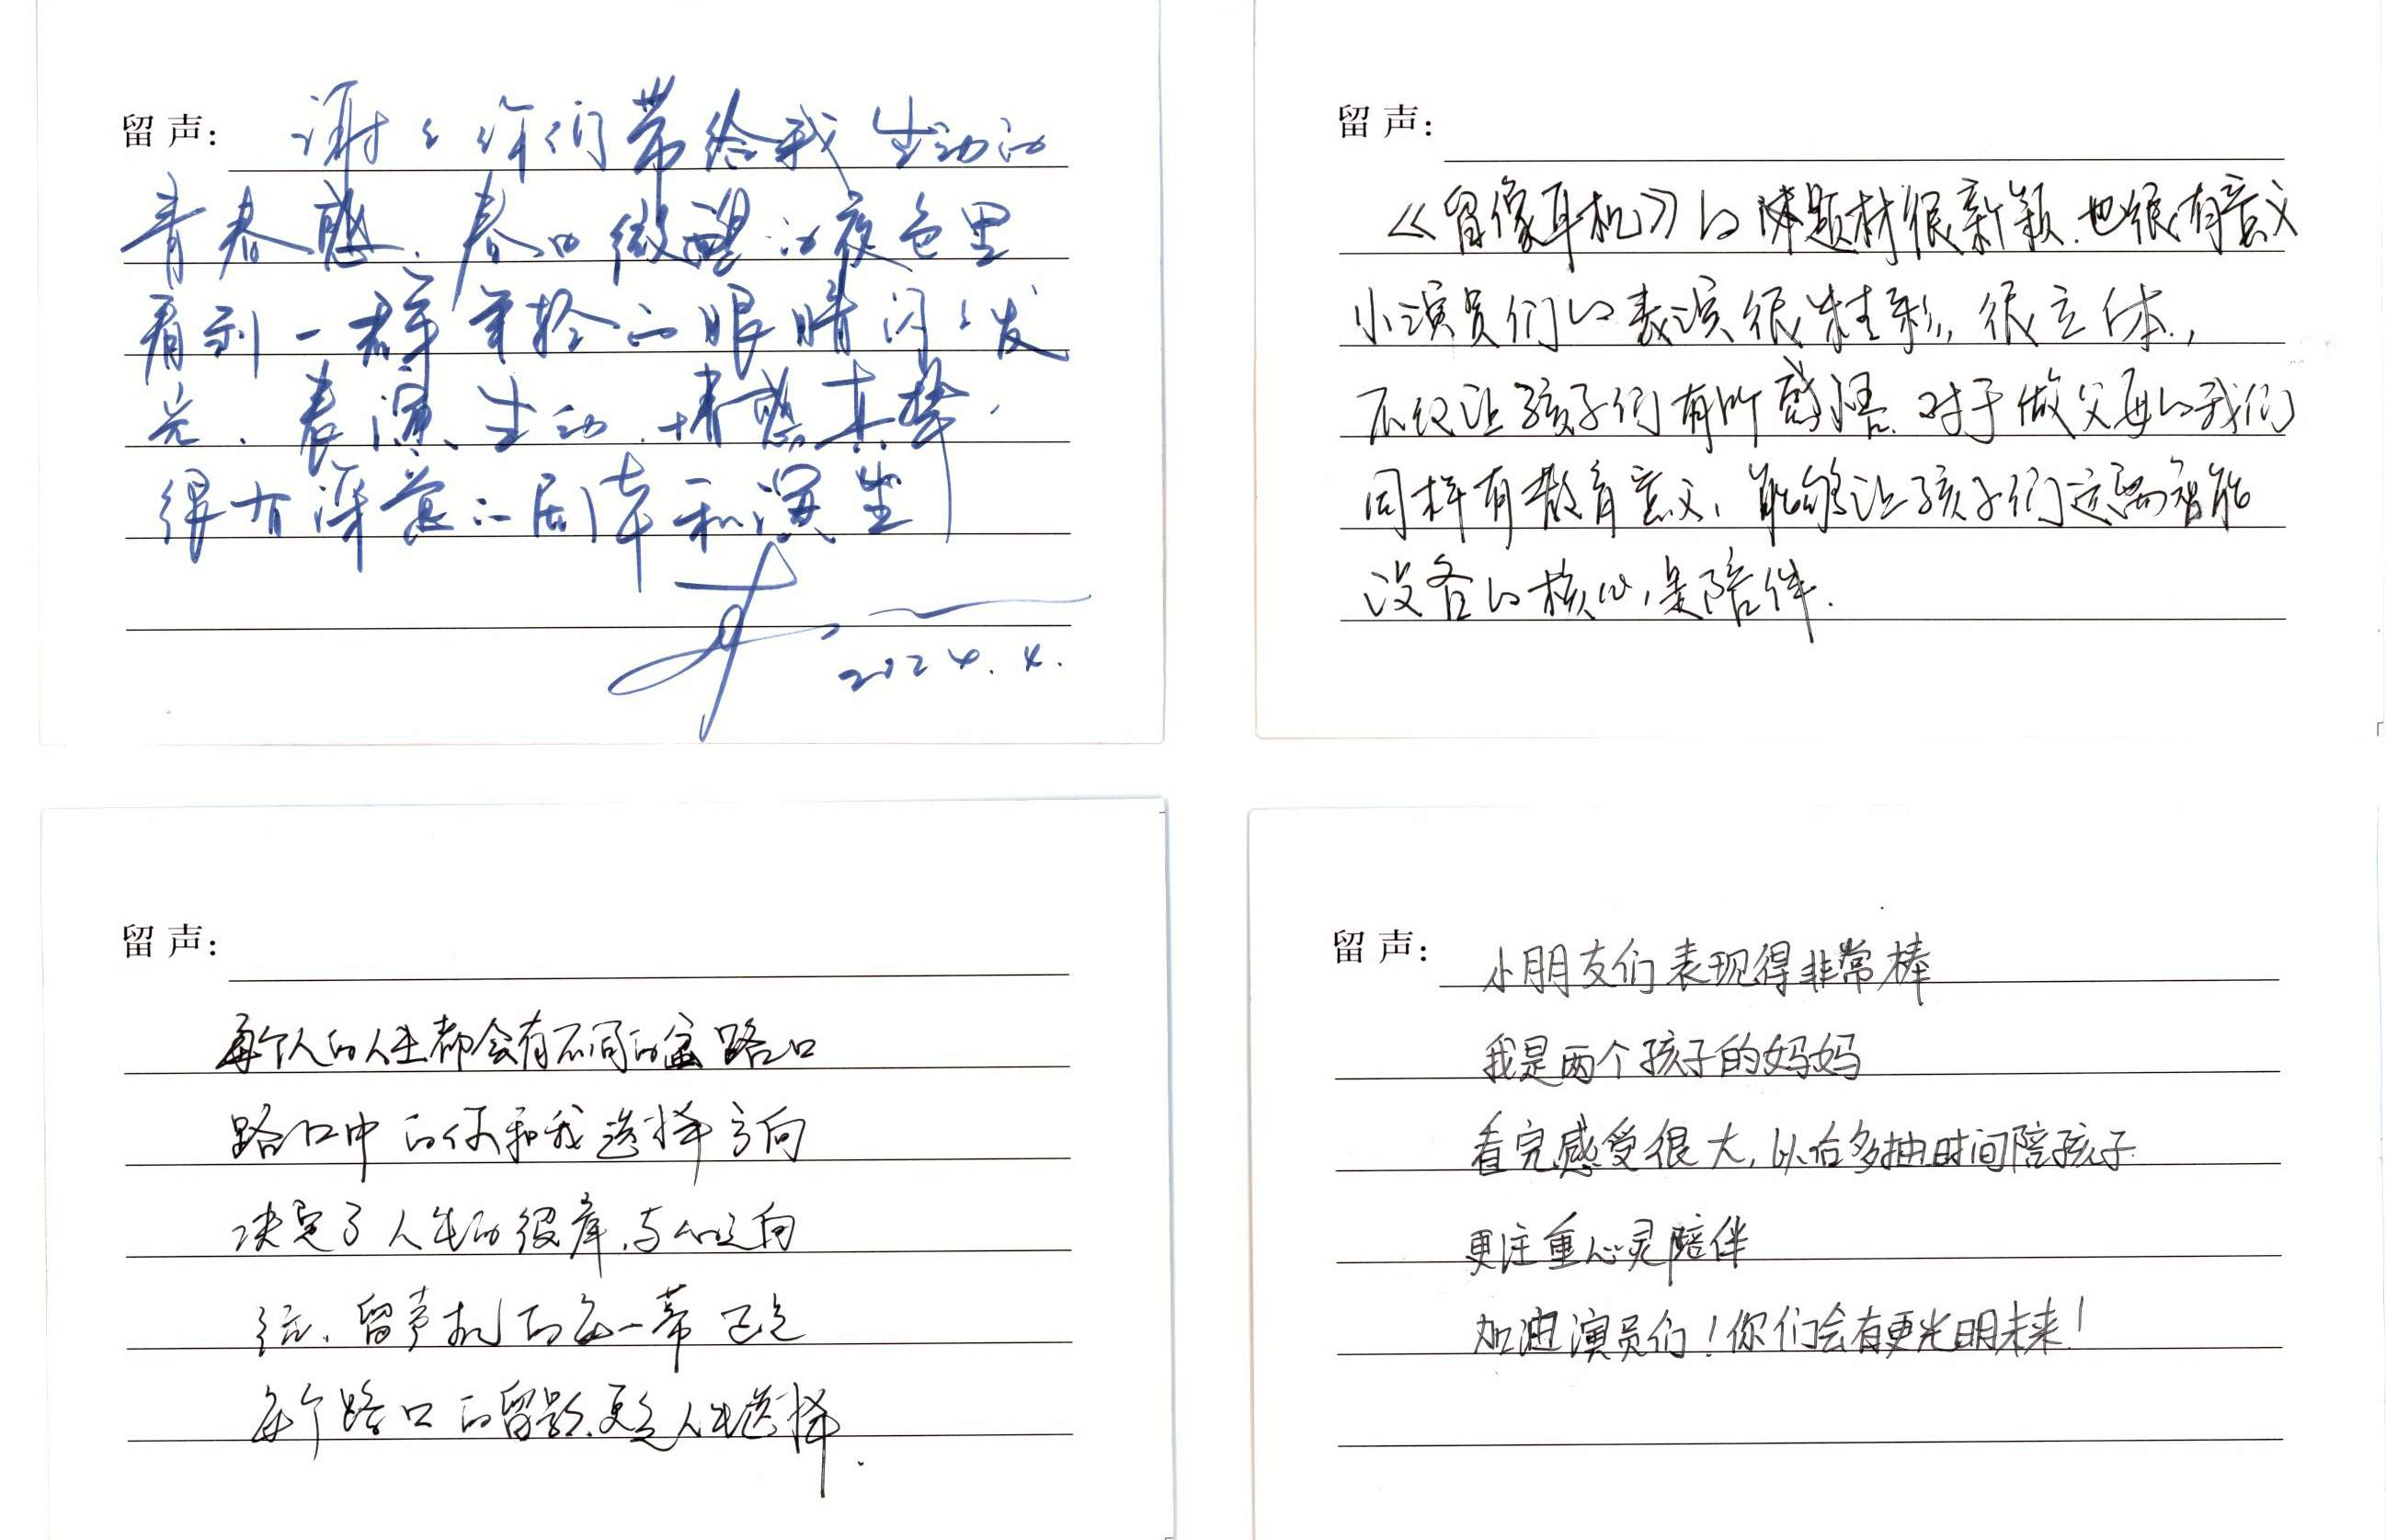 留声:
谢谢你们带给我生动的
青春感,春日微醺的夜色里
看到一群年轻的眼睛闪闪发
光,表演生动,情感真挚,
很有深意的剧本和演出
2024.4.
留声:
《留像耳机》的题材很新颖,也很有意义
小演员们的表演很精彩,很立体,
不仅让孩子们有所感悟,对于做父母的我们
同样有教育意义,能够让孩子们远离智能
设备的核心,是陪伴.
留声:
每个人的人生都会有不同的路口
路口中的你和我选择方向
决定了人生的彼岸,与
留声机的每一幕正是
每个路口的留影,更是人生选择.
留声:
小朋友们表现得非常棒
我是两个孩子的妈妈
看完感受很大,以后多抽时间陪孩子
更注重心灵陪伴
加油演员们!你们会有更光明未来!